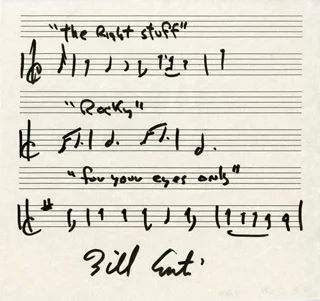 "The Right Stuff"
"Rocky"
"for your eyes only"
Bill Conti